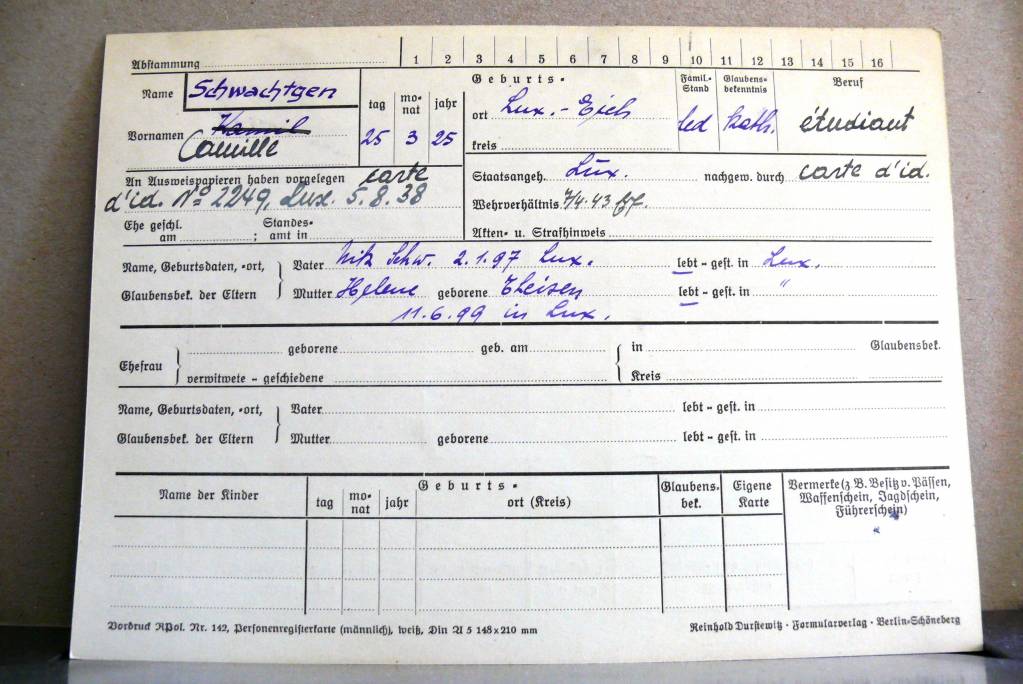 Abstammung 1 2 3 4 5 6 7 8 9 10 11 12 13 14 15 16
Name Schwachtgen
tag monat jahr
25 3 25
Geburts-
ort Lux.-Eich
kreis
Famil.-Stand
led
Glaubensbekenntnis
kath.
Beruf
étudiant
Vornamen Kamil
Camille
An Ausweispapieren haben vorgelegen carte
d'id. No 2249, Lux. 5.8.38
Staatsangeh. Lux. nachgew. durch carte d'id.
Wehrverhältnis 7/4.43
Ehe geschl. am ; Standesamt in
Akten- u. Strafhinweis
Name, Geburtsdaten, -ort,
Glaubensbek. der Eltern
Vater Nik Schw. 2.1.97 Lux. lebt - gest. in Lux.
Mutter Helene geborene Theisen lebt - gest. in "
11.6.99 in Lux.
Ehefrau
geborene geb. am in Glaubensbek.
verwitwete - geschiedene Kreis
Name, Geburtsdaten, -ort,
Glaubensbek. der Eltern
Vater lebt - gest. in
Mutter geborene lebt - gest. in
Name der Kinder
Geburts-
tag monat jahr ort (Kreis)
Glaubensbek.
Eigene Karte
Vermerke (z. B. Besitz v. Pässen,
Waffenschein, Jagdschein,
Führerschein)
Vordruck RPol. Nr. 142, Personenregisterkarte (männlich), weiß, Din A 5 148 x 210 mm
Reinhold Durstewitz · Formularverlag · Berlin-Schöneberg